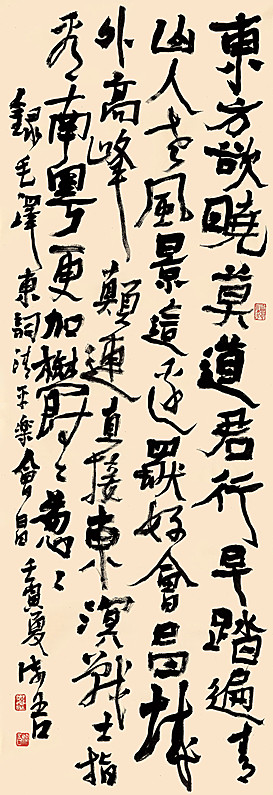 東方欲曉莫道君行早踏遍青
山人老風景這邊獨好會昌城
外高峰顛連直接東溟戰士指
看南粵更加鬱々葱々
錄毛澤東詞清平樂會昌壬寅夏